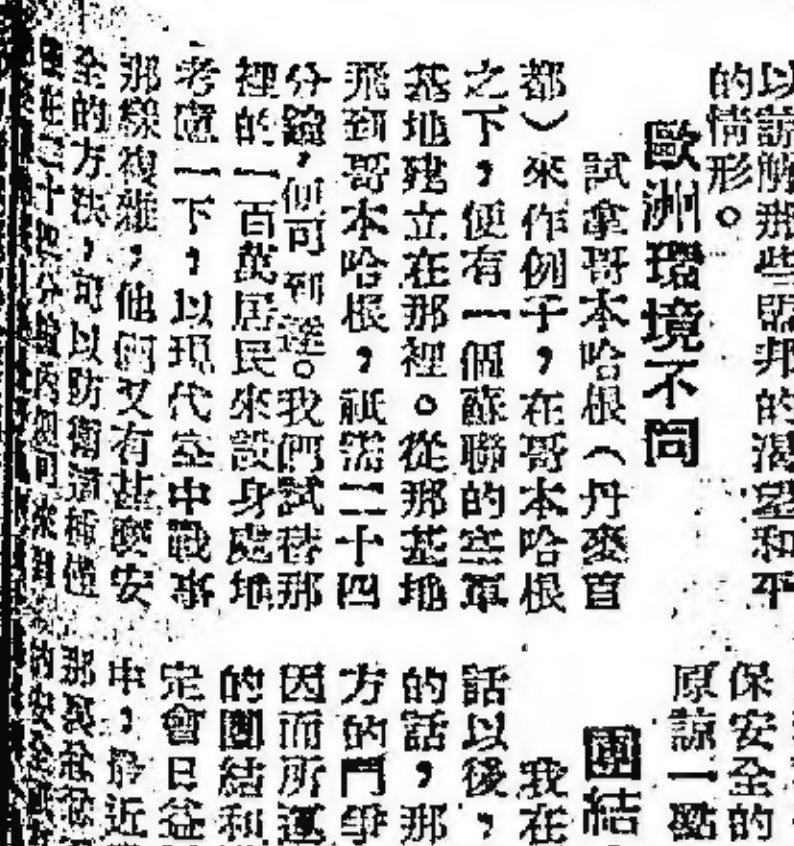 以諒解那些盟邦的渴望和平
的情形。
歐洲環境不同
試拿哥本哈根(丹麥首
都)來作例子,在哥本哈根
之下,便有一個蘇聯的空軍
基地建立在那裡。從那基地
飛到哥本哈根,祇需二十四
分鐘,便可到達。我們試替那
裡的一百萬居民來設身處地
考慮一下,以現代空中戰事
那樣複雜,他們又有甚麼安
全的方法,可以防衛這種
保安全的
原諒一點
團結
我在
話以後,
的話,那
方的鬥爭
因而所運
的團結和
定會日益
中,最近